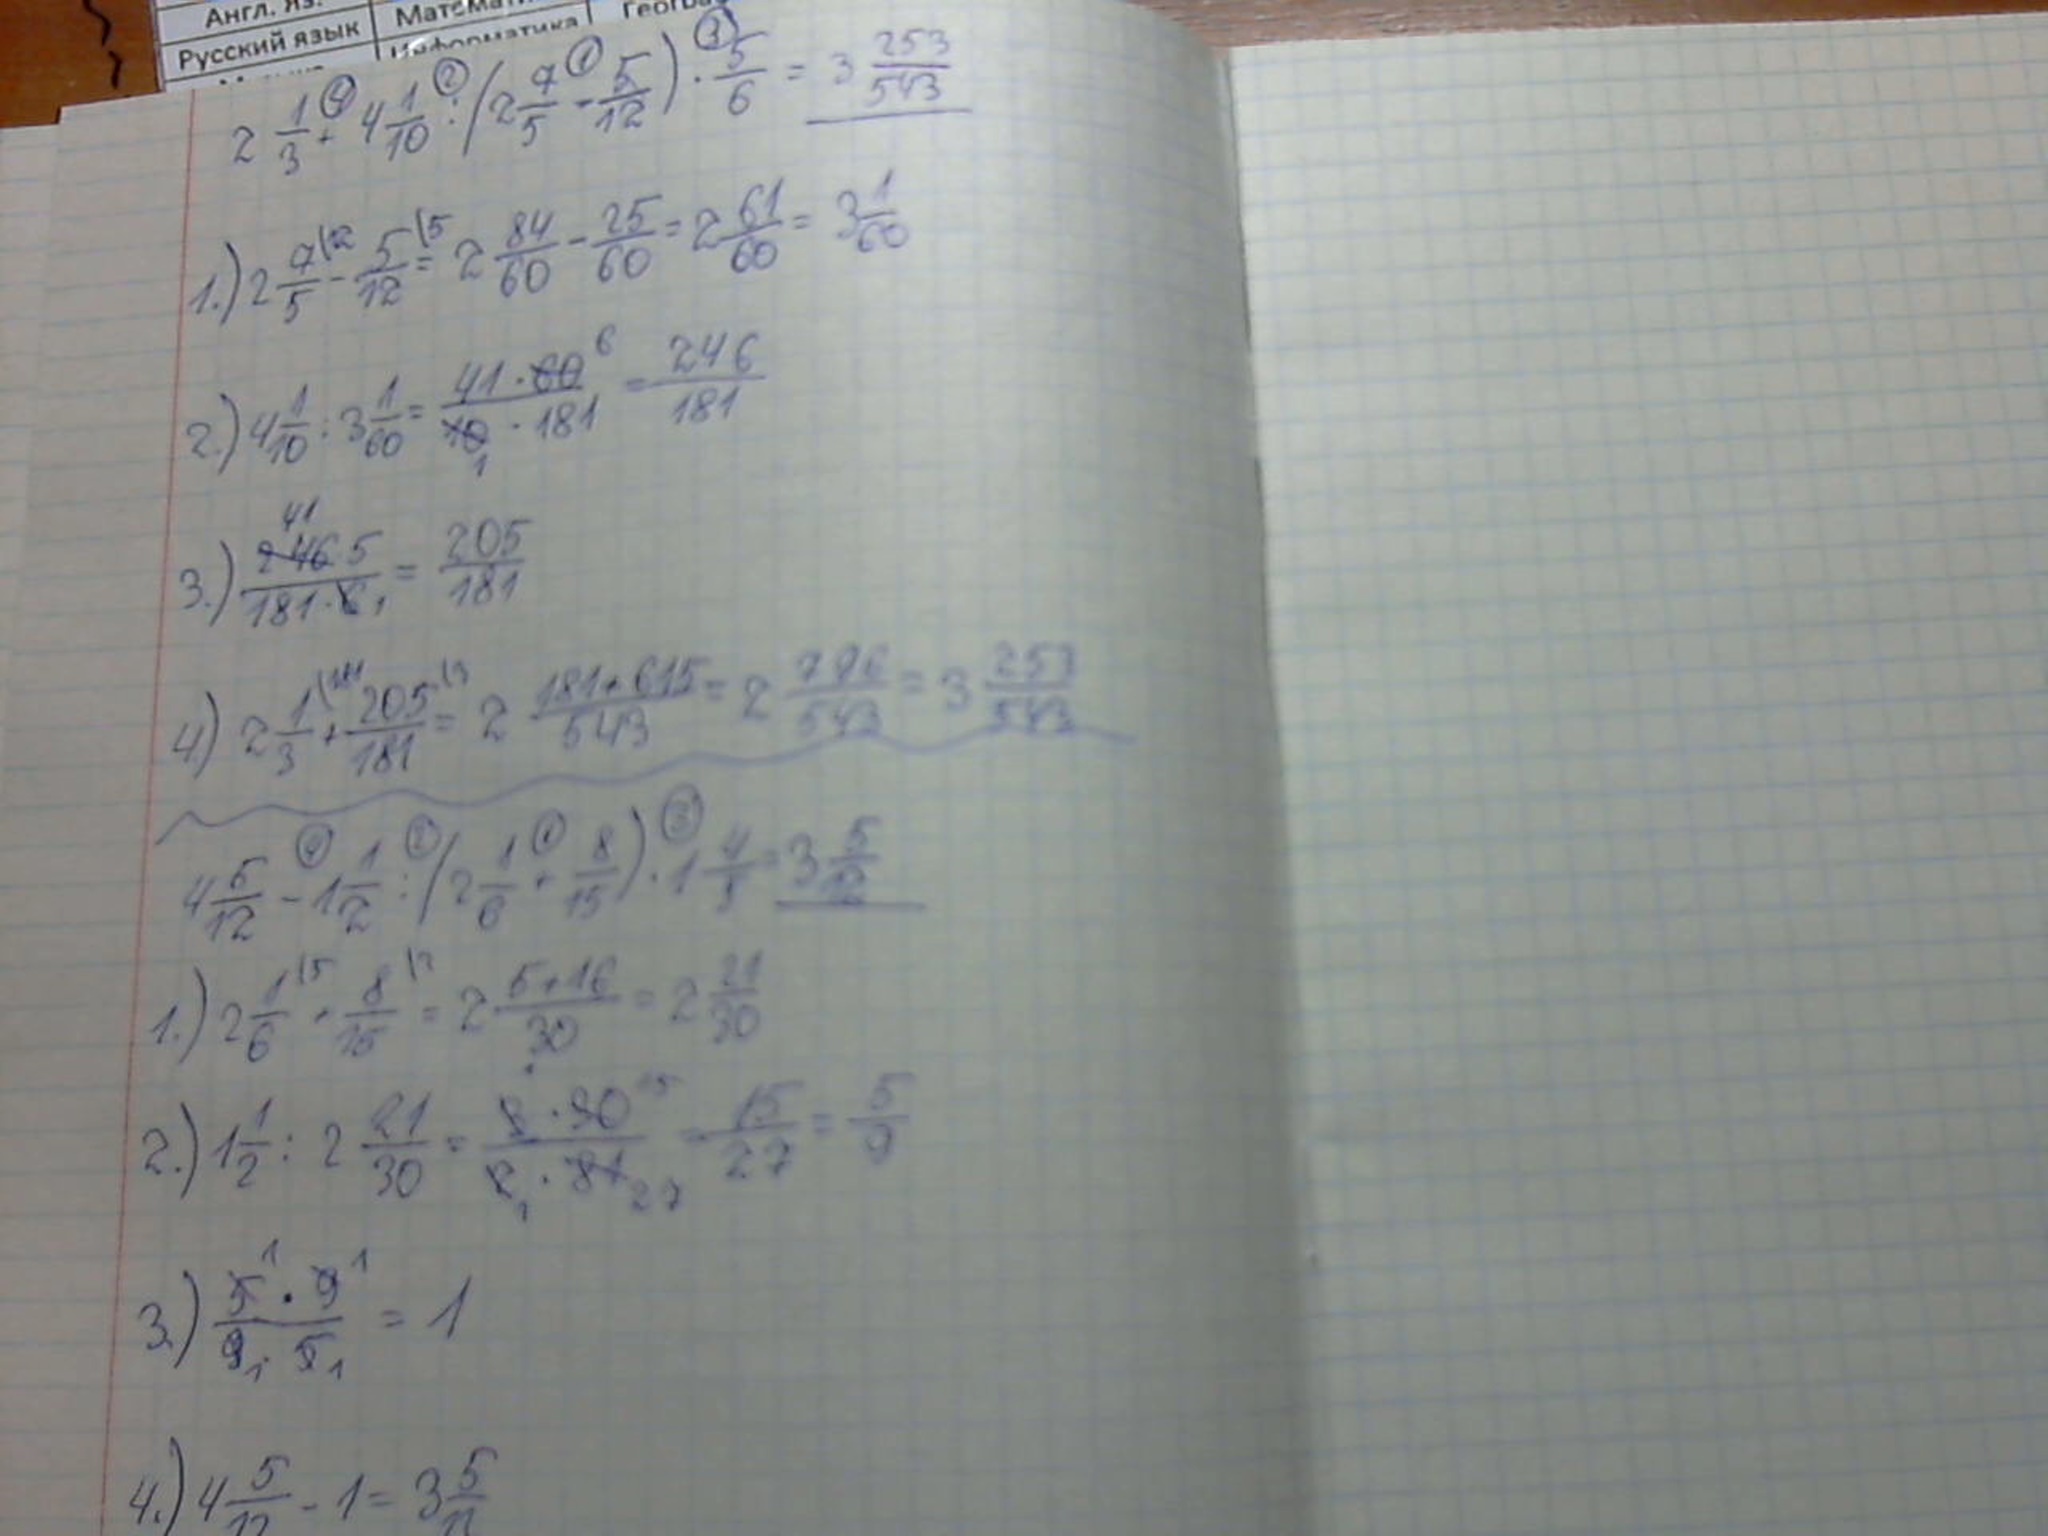 Англ. яз.
Русский язык
Информатика
2 1/3 + 4 1/10 : (2 7/5 - 5/12) · 5/6 = 3 253/543
1.) 2 7/5 - 5/12 = 2 84/60 - 25/60 = 2 61/60 = 3 1/60
2.) 4 1/10 : 3 1/60 = 41 · 60 6/10 1 · 181 = 246/181
3.) 41 246 · 5/181 · 6 1 = 205/181
4) 2 1/3 + 205/181 = 2 181+615/543 = 2 796/543 = 3 253/543
4 5/12 - 1 1/2 : (2 1/6 + 8/15) · 1 4/5 = 3 5/12
1.) 2 1/6 + 8/15 = 2 5+16/30 = 2 21/30
2.) 1 1/2 : 2 21/30 = 3 · 30 15/2 1 · 81 27 = 15/27 = 5/9
3.) 5 1 · 9 1/9 1 · 5 1 = 1
4.) 4 5/12 - 1 = 3 5/12